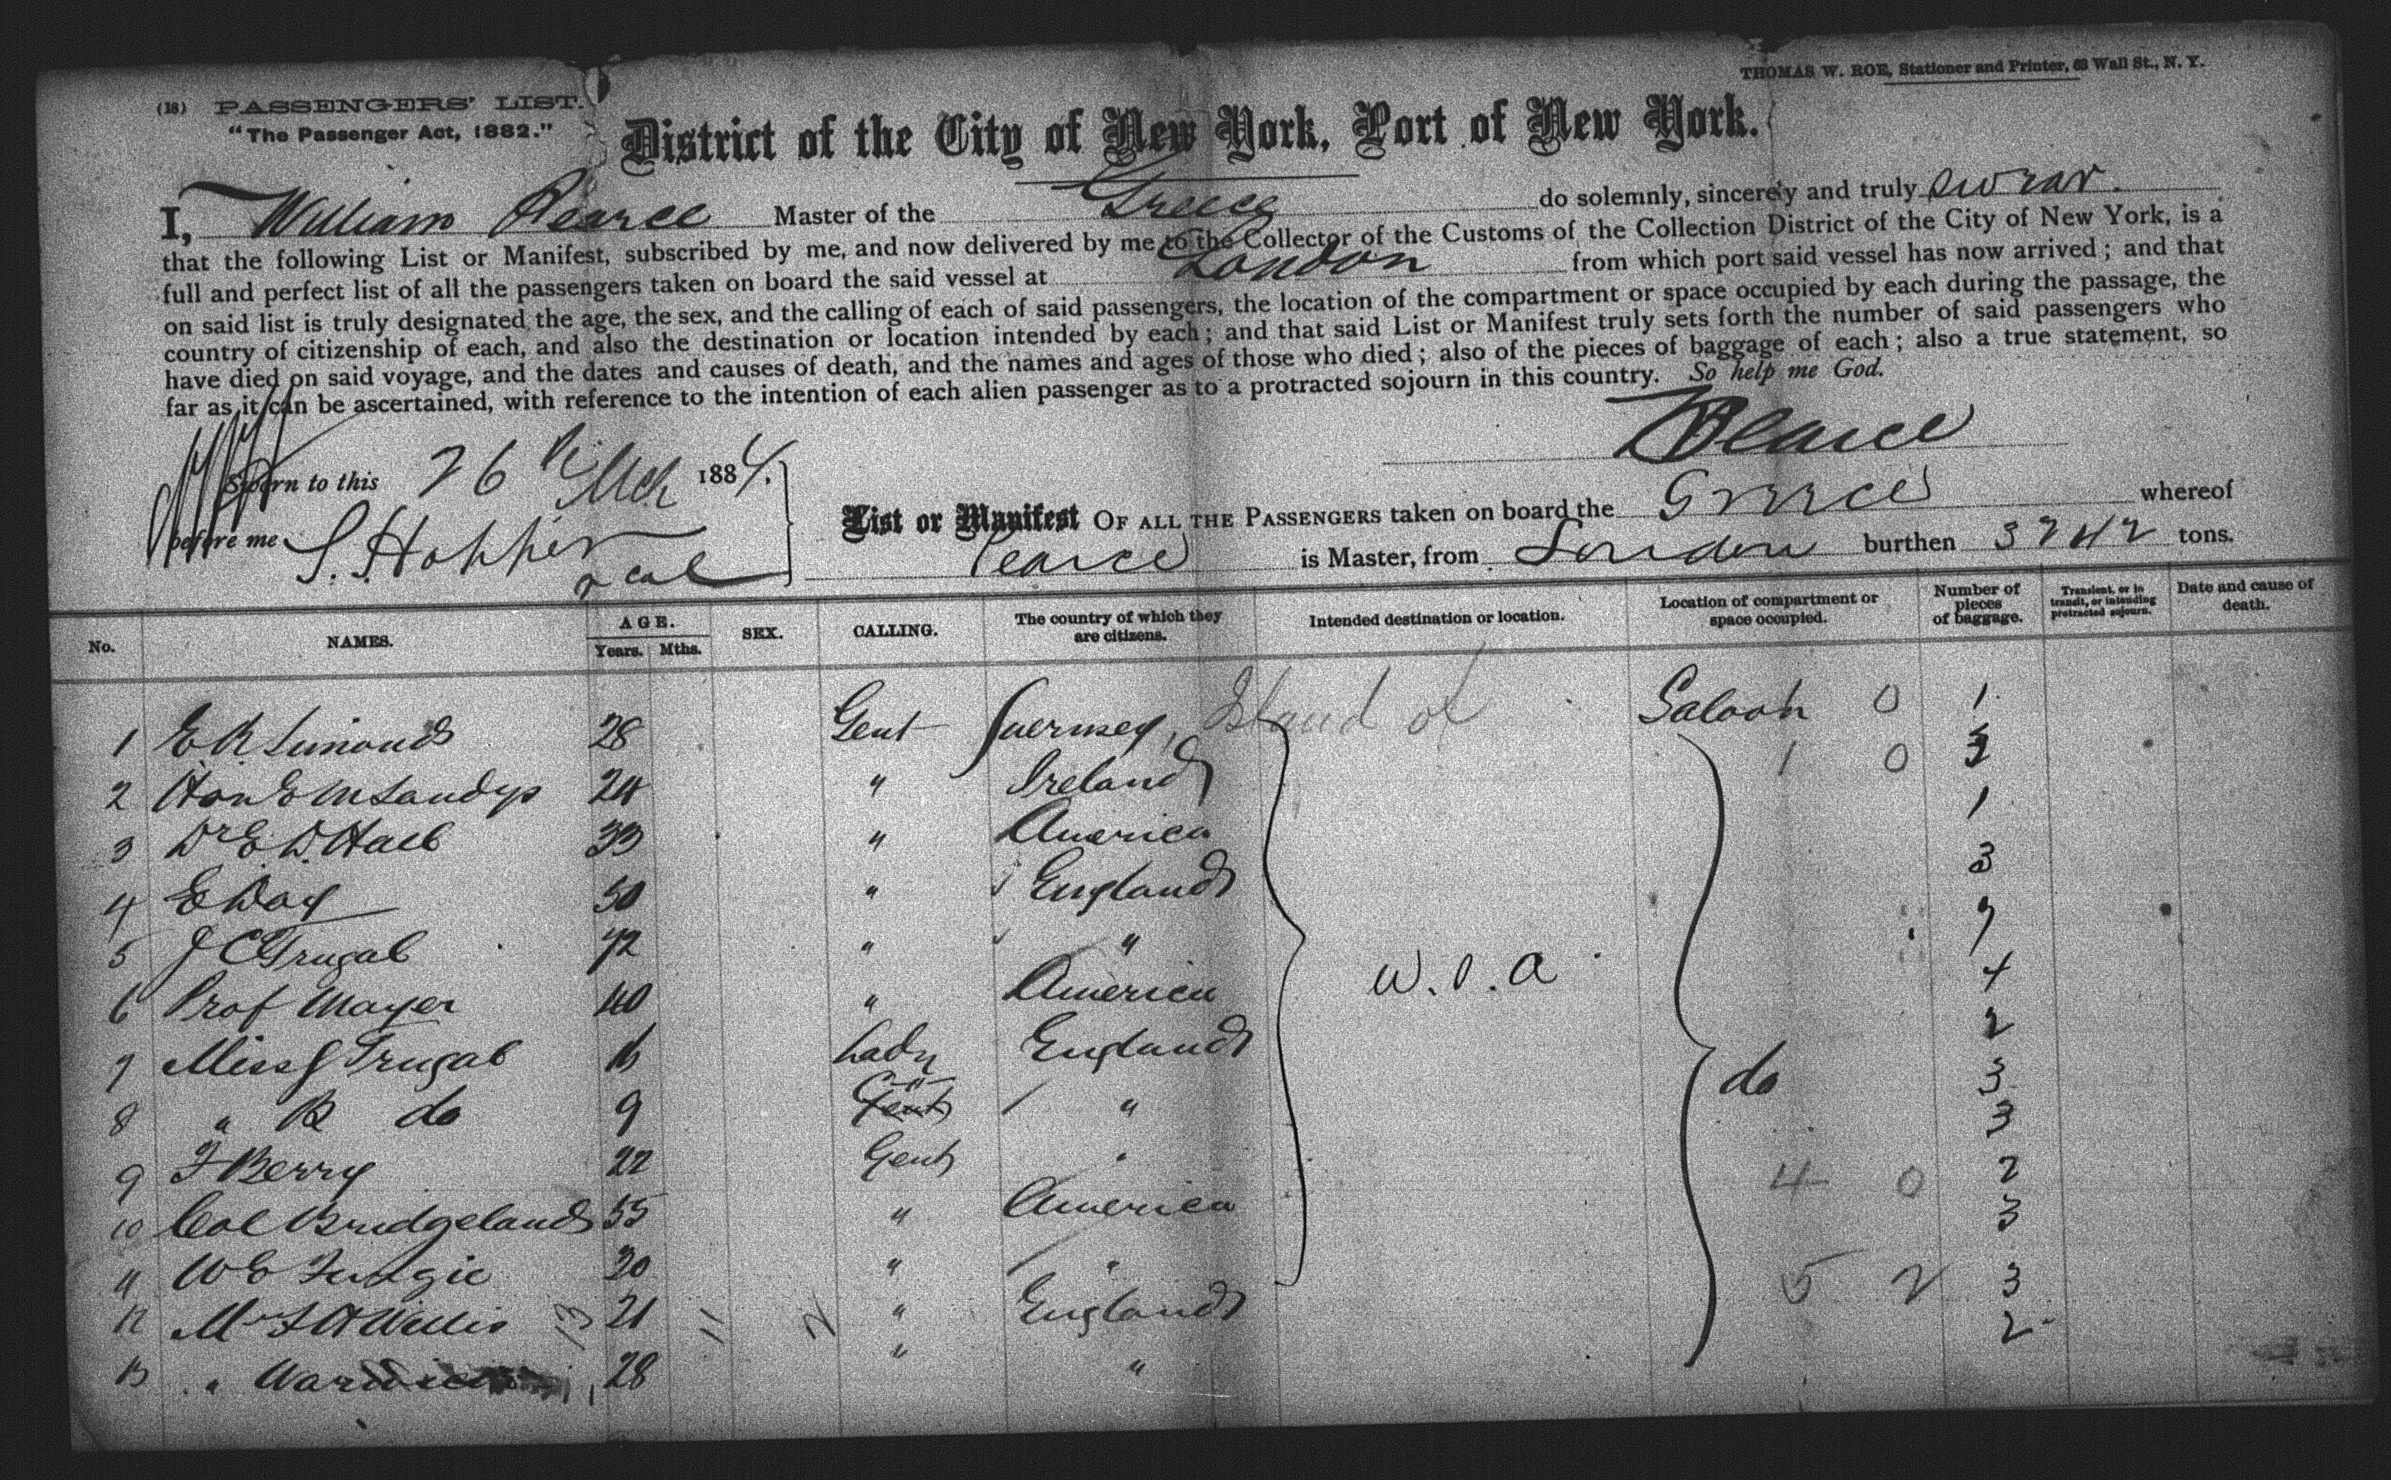 THOMAS W. ROE, Stationer and Printer, 63 Wall St., N. Y.
(18) PASSENGERS' LIST.
"The Passenger Act, 1882."
District of the City of New York, Port of New York.
I, William Pearce Master of the Greece do solemnly, sincerely and truly swear
that the following List or Manifest, subscribed by me, and now delivered by me to the Collector of the Customs of the Collection District of the City of New York, is a
full and perfect list of all the passengers taken on board the said vessel at London from which port said vessel has now arrived; and that
on said list is truly designated the age, the sex, and the calling of each of said passengers, the location of the compartment or space occupied by each during the passage, the
country of citizenship of each, and also the destination or location intended by each; and that said List or Manifest truly sets forth the number of said passengers who
have died on said voyage, and the dates and causes of death, and the names and ages of those who died; also of the pieces of baggage of each; also a true statement, so
far as it can be ascertained, with reference to the intention of each alien passenger as to a protracted sojourn in this country. So help me God.
Pearce
Sworn to this 26th Mch 1884.
before me S. Hopper
List or Manifest OF ALL THE PASSENGERS taken on board the Greece whereof
Pearce is Master, from London burthen 3242 tons.
No. NAMES. AGE. Years. Mths. SEX. CALLING. The country of which they are citizens. Intended destination or location. Location of compartment or space occupied. Number of pieces of baggage. Transient, or in transit, or intending protracted sojourn. Date and cause of death.
1 E R Simonds 28 Gent Guernsey, Island of Saloon 0 1
2 Hon E M Sandys 24 " Ireland 1 0
3 Dr E. D. Hall 33 " America 1
4 E Day 50 " England 3
5 J C Frugal 72 " " 7
6 Prof Mayer 40 " America W.S.A 4
7 Miss J Frugal 16 Lady England 2
8 " B do 9 " " do 3
9 F Berry 22 Gent " 3
10 Col Bridgeland 55 " America 4 0 2
11 W E 30 " " 3
12 Mr F H Willis 13 21 11 2 " England 5 2 3
13 " 28 " " 2